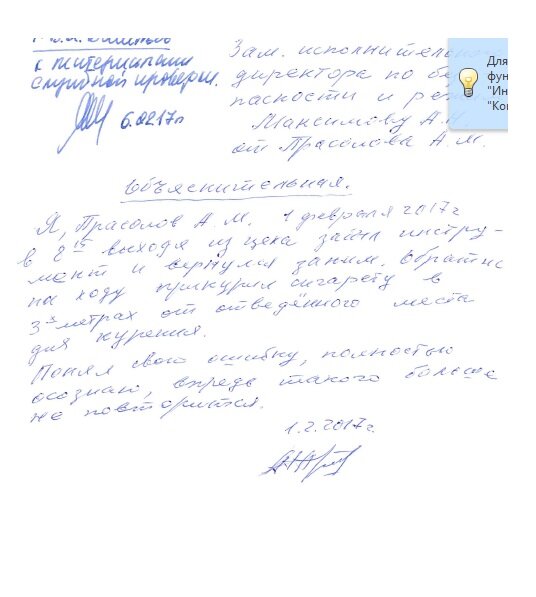 к материалам
служебной проверки.
6.02.17г
Зам. исполнительного
директора по бе
пасности и ре
Максимову А.Н.
от Прасолова А.М.
Для
фун
"Ин
"Кон
Объяснительная.
Я, Прасолов А.М. 1 февраля 2017г
в 8 15 выходя из цеха забыл инстру-
мент и вернулся за ним. Обратно
на ходу прикурил сигарету в
3х метрах от отведённого места
для курения.
Понял свою ошибку, полностью
осознаю, впредь такого больше
не повторится.
1.2.2017г.